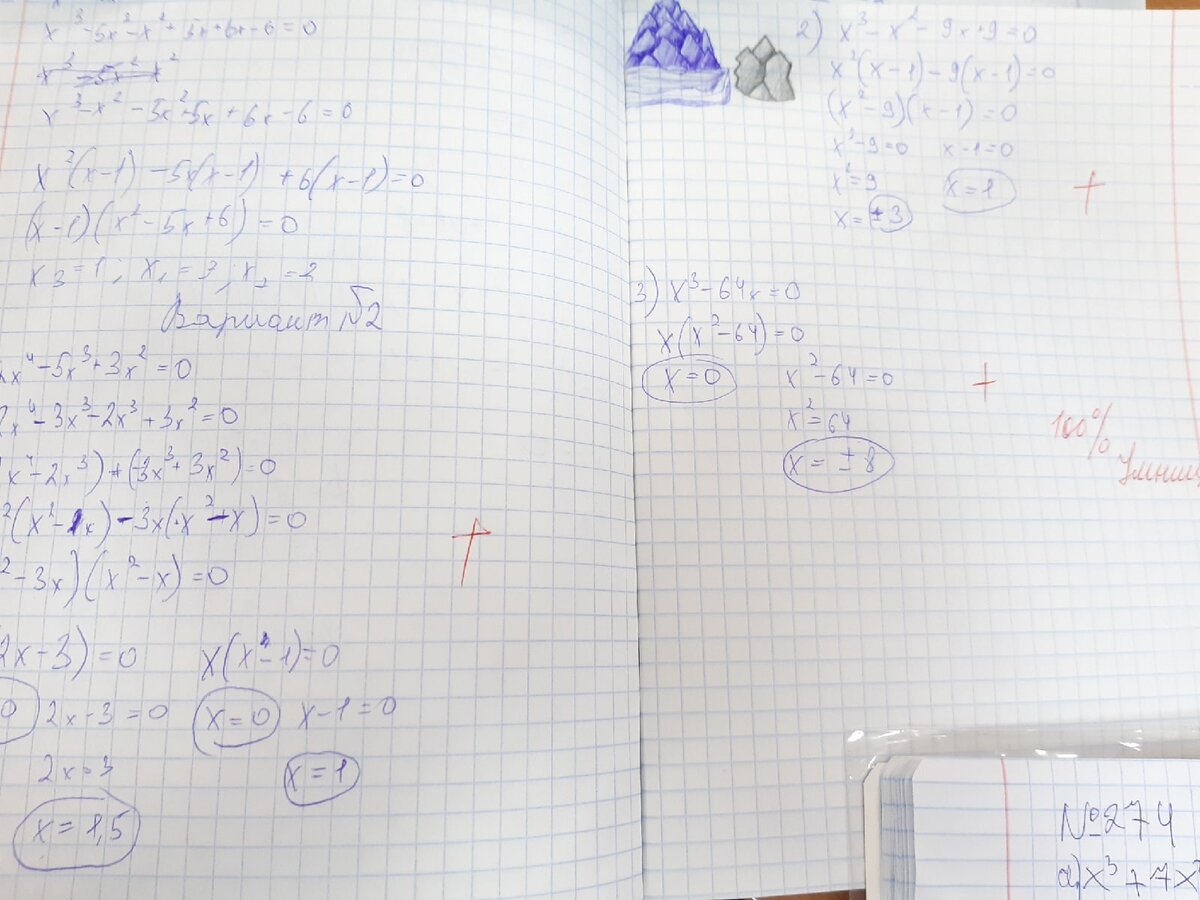 x³-5x²-x²+5x+6x-6=0
x³-5x² x²
x³-x²-5x²+5x+6x-6=0
x²(x-1)-5x(x-1)+6(x-1)=0
(x-1)(x²-5x+6)=0
x₃=1; x₁=3; x₂=2
Вариант №2
2x⁴-5x³+3x²=0
2x⁴-3x³-2x³+3x²=0
x⁴-2x³)+(-3x³+3x²)=0
²(x²-1x)-3x(x²-x)=0
²-3x)(x²-x)=0
(2x-3)=0 x(x-1)=0
0 2x-3=0 x=0 x-1=0
2x=3 x=1
x=1,5
2) x³-x²-9x+9=0
x²(x-1)-9(x-1)=0
(x²-9)(x-1)=0
x²-9=0 x-1=0
x²=9 x=1 +
x=±3
3) x³-64x=0
x(x²-64)=0
x=0 x²-64=0 +
x²=64
x=±8
100%
+
№274
а) x³+7x²